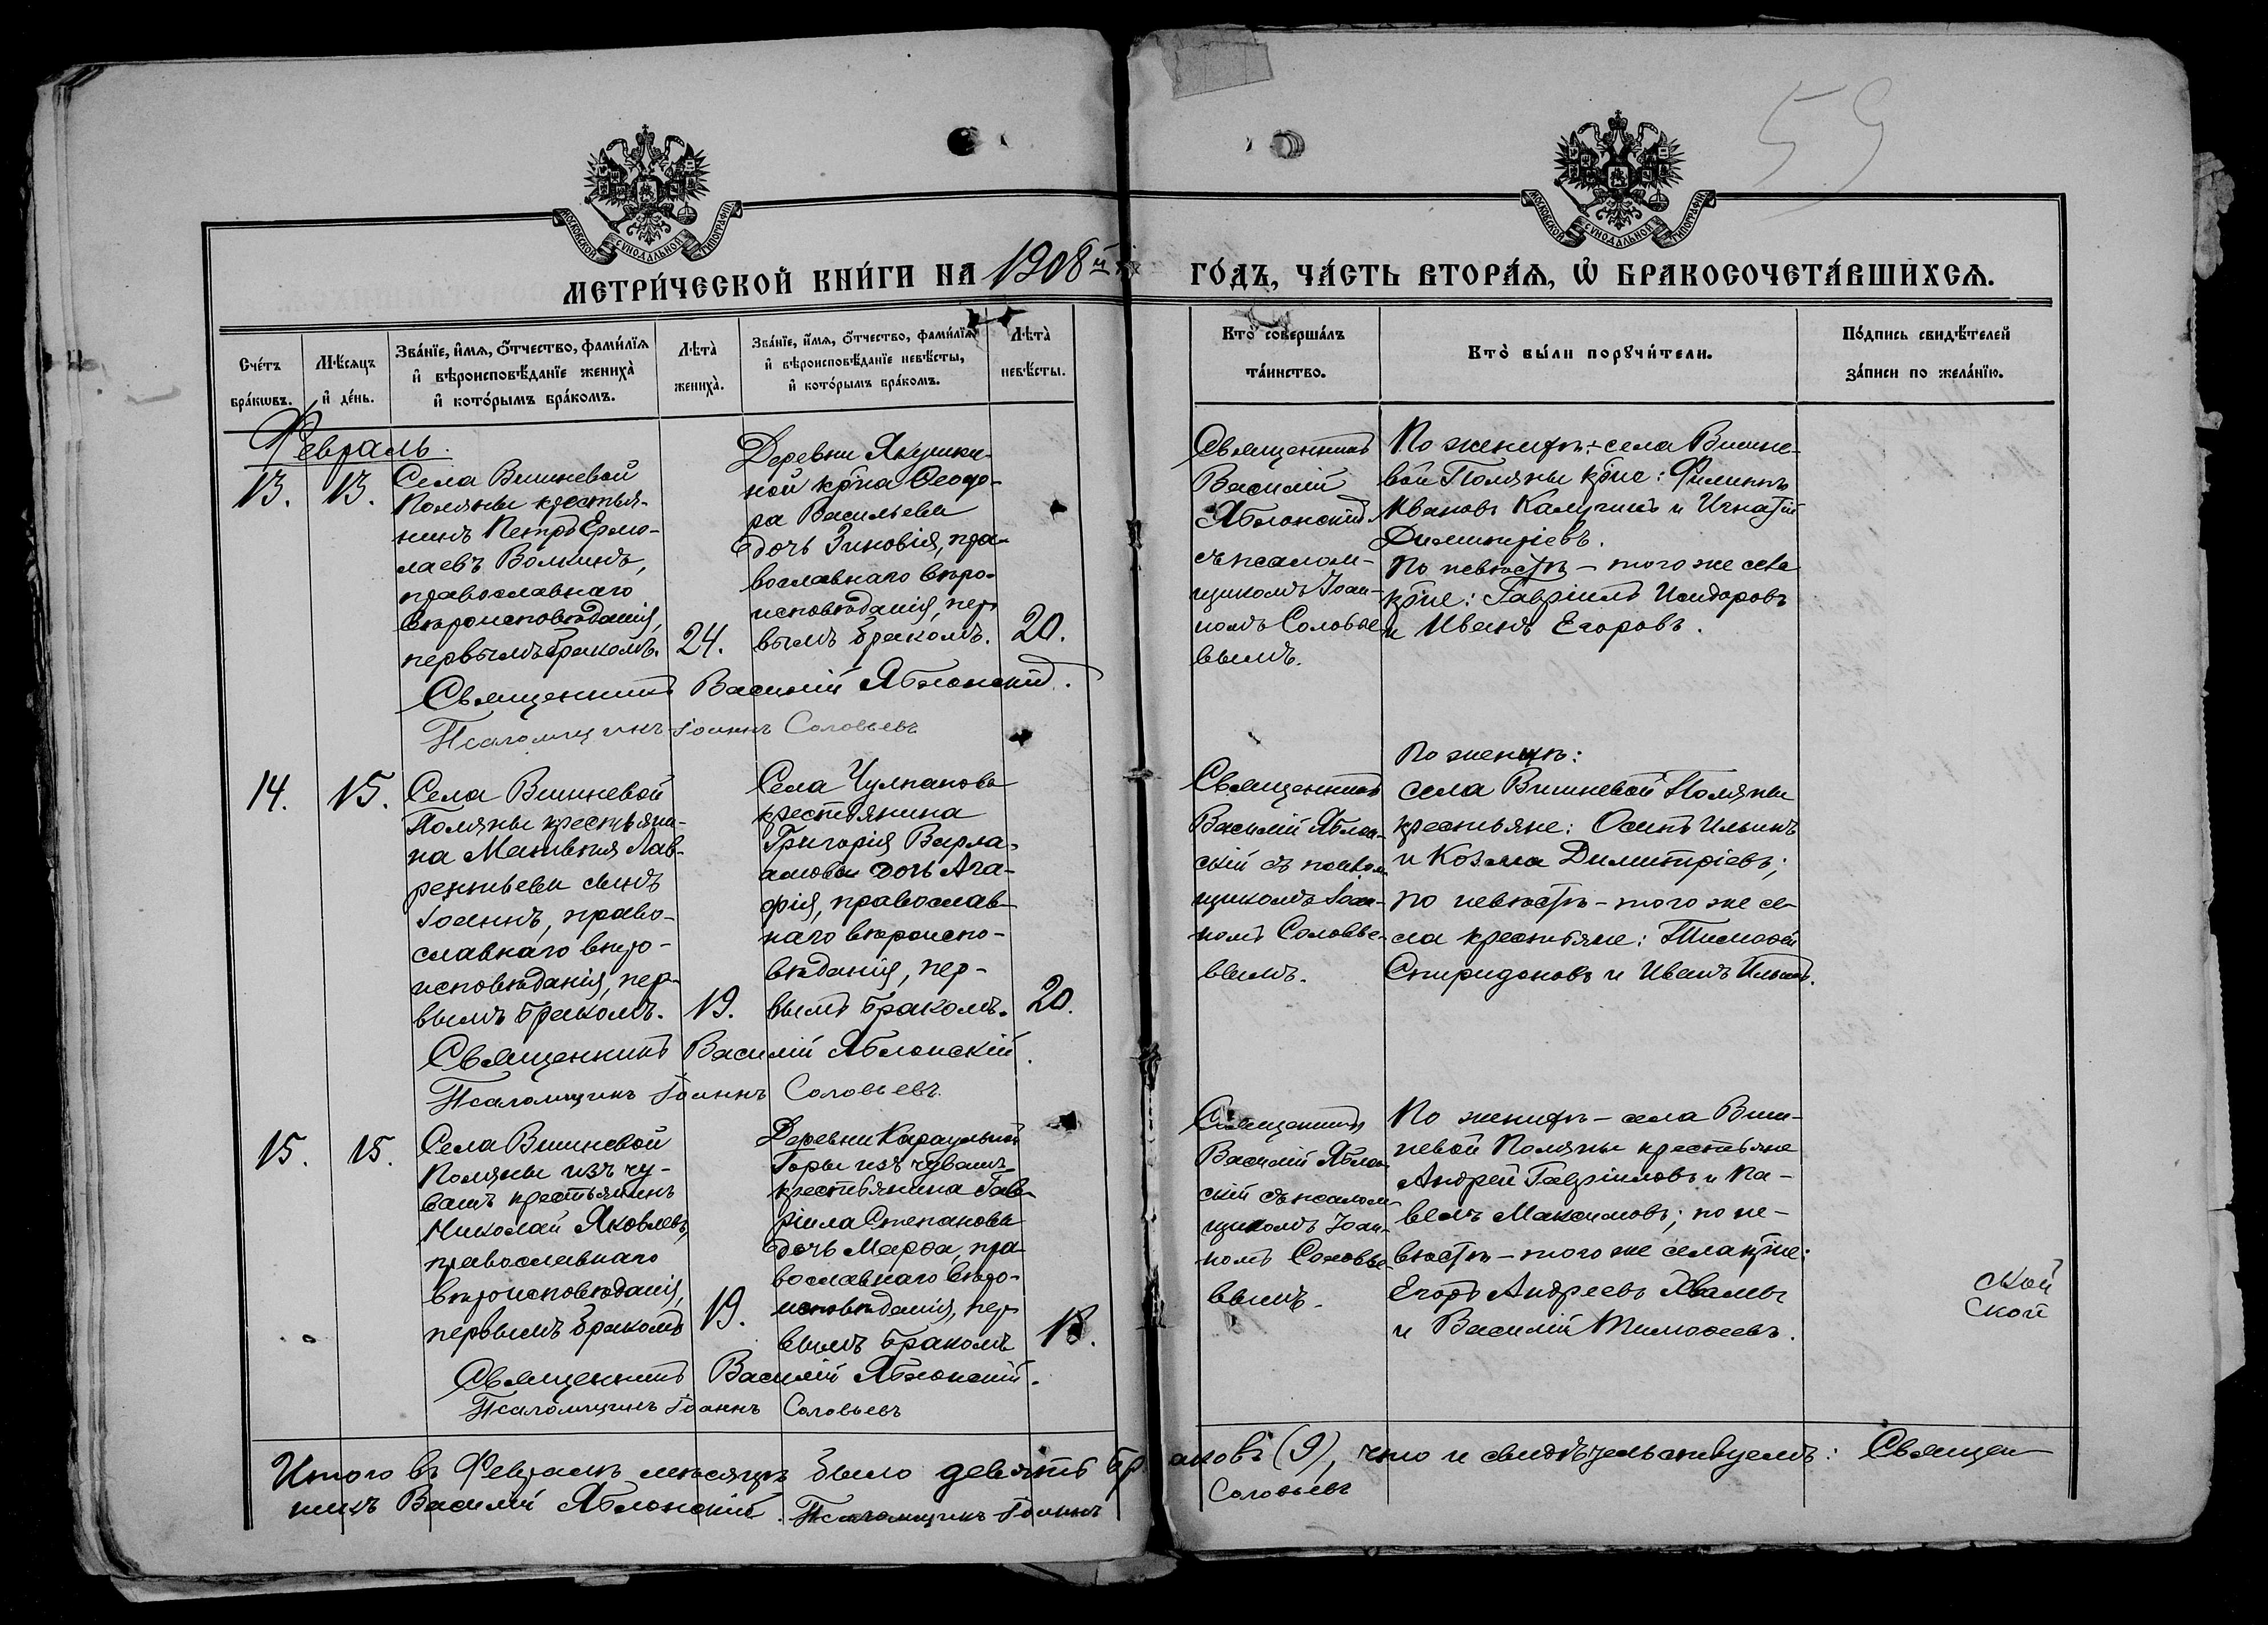 59
МОСКОВСКОЙ СѴНОДАЛЬНОЙ ТИПОГРАФІИ
МОСКОВСКОЙ СѴНОДАЛЬНОЙ ТИПОГРАФІИ
МЕТРИ́ЧЕСКОЙ КНИ́ГИ НА 1908й ГО́ДЪ, ЧА́СТЬ ВТОРА́Я, Ѡ БРАКОСОЧЕТА́ВШИХСЯ.
Сче́тъ
бра́кѡвъ.
Мѣ́сяцъ
и҆ де́нь.
Зва́нїе, и҆́мя, ѻ҆́тчество, фами́лїя
и҆ вѣроисповѣ́данїе жениха̀
и҆ кото́рымъ бра́комъ.
Лѣта̀
жениха̀.
Зва́нїе, и҆́мя, ѻ҆́тчество, фами́лїя
и҆ вѣроисповѣ́данїе невѣ́сты,
и҆ кото́рымъ бра́комъ.
Лѣта̀
невѣ́сты.
Кто̀ соверша́лъ
та́инство.
Кто̀ бы́ли порꙋчи́тели.
По́дпись свидѣ́телей
за́писи по жела́нїю.
Февраль.
13.
13.
Села Вишневой
Поляны крестья-
нинъ Петръ Ермо-
лаевъ Волкинъ,
православнаго
вѣроисповѣданія,
первымъ бракомъ.
24.
Деревни Якушки-
ной кр-на Ѳеодо-
ра Васильева
дочь Зиновія, пра-
вославнаго вѣро-
исповѣданія, пер-
вымъ бракомъ.
20.
Священникъ
Василій
Яблонскій
съ псалом-
щикомъ Іоан-
номъ Соловье-
вымъ.
По женихѣ: села Вишне-
вой Поляны кр-не: Филиппъ
Ивановъ Калугинъ и Игнатій
Димитріевъ.
По невѣстѣ - того же села
кр-не: Гавріилъ Исидоровъ
и Иванъ Егоровъ.
Священникъ Василій Яблонскій.
Псаломщикъ Іоаннъ Соловьевъ
14.
15.
Села Вишневой
Поляны крестьяни-
на Матвѣя Лав-
рентьева сынъ
Іоаннъ, право-
славнаго вѣро-
исповѣданія, пер-
вымъ бракомъ.
19.
Села Чулпанова
крестьянина
Григорія Варла-
амова дочь Ага-
фія, православ-
наго вѣроиспо-
вѣданія, пер-
вымъ бракомъ.
20.
Священникъ
Василій Яблон-
скій съ псалом-
щикомъ Іоан-
номъ Соловье-
вымъ.
По женихѣ:
села Вишневой Поляны
крестьяне: Осипъ Ильинъ
и Козма Димитріевъ;
по невѣстѣ - того же се-
ла крестьяне: Тимоѳей
Спиридоновъ и Иванъ Ильинъ.
Священникъ Василій Яблонскій.
Псаломщикъ Іоаннъ Соловьевъ.
15.
15.
Села Вишневой
Поляны изъ чу-
вашъ крестьянинъ
Николай Яковлевъ,
православнаго
вѣроисповѣданія,
первымъ бракомъ
19.
Деревни Караульной
Горы изъ чувашъ
крестьянина Гав-
ріила Степанова
дочь Марѳа, пра-
вославнаго вѣро-
исповѣданія, пер-
вымъ бракомъ
18.
Священникъ
Василій Яблон-
скій съ псалом-
щикомъ Іоан-
номъ Соловье-
вымъ.
По женихѣ - села Виш-
невой Поляны крестьяне
Андрей Гавріиловъ и Па-
велъ Максимовъ; по не-
вѣстѣ - того же села кр-не:
Егоръ Андреевъ
и Василій Тимоѳеевъ.
ской
ской
Священникъ Василій Яблонскій.
Псаломщикъ Іоаннъ Соловьевъ
Итого въ Февралѣ мѣсяцѣ было девять браковъ (9), что и свидѣтельствуемъ: Священ-
никъ Василій Яблонскій. Псаломщикъ Іоаннъ Соловьевъ